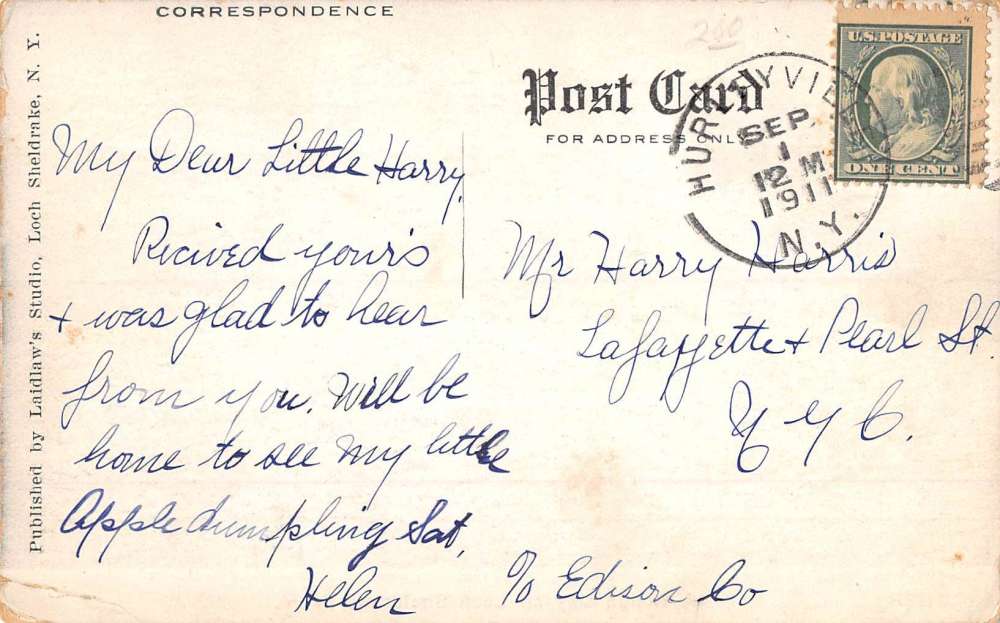 CORRESPONDENCE
Post Card
FOR ADDRESS ONLY
Published by Laidlaw's Studio, Loch Sheldrake, N. Y.
200
U.S. POSTAGE
ONE CENT
HURLEYVILLE
SEP
1
12 M
1911
N.Y.
My Dear Little Harry,
Recived your's
+ was glad to hear
from you. Will be
home to see my little
Apple dumpling Sat,
Helen
Mr Harry Harris
Lafayette + Pearl St.
N Y C.
c/o Edison Co